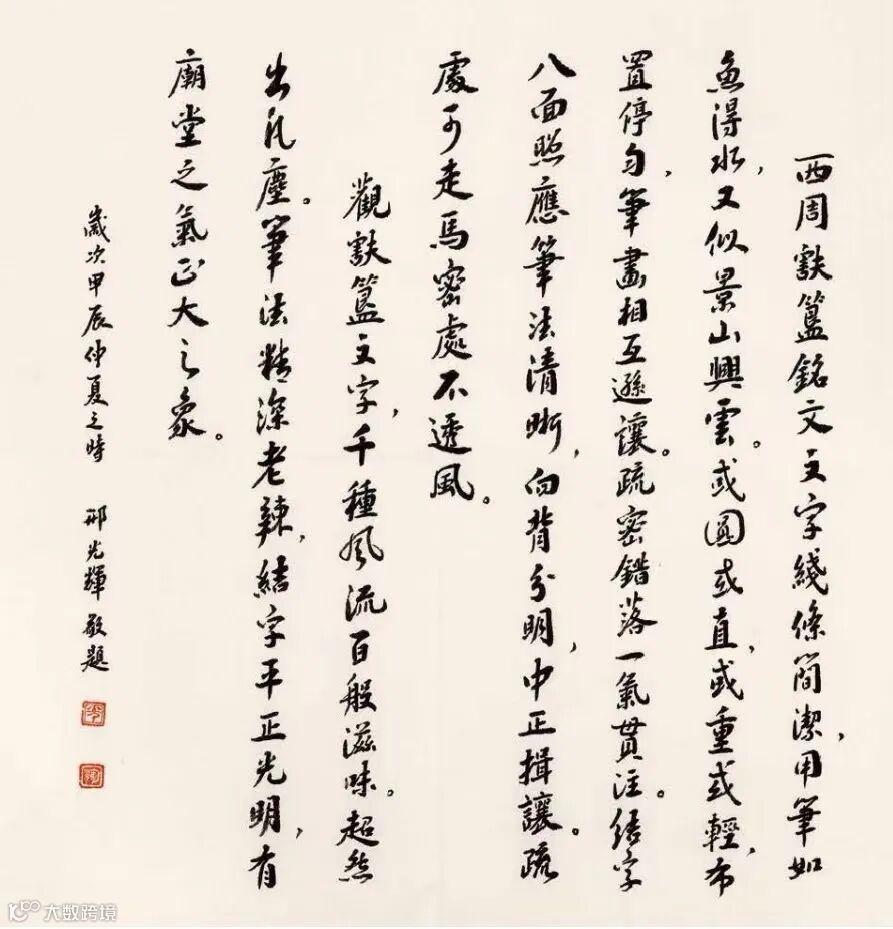 西周㝬簋銘文文字綫條簡潔，用筆如
魚得水，又似景山興雲。或圓或直，或重或輕，布
置停勻，筆畫相互遜讓。疏密錯落一氣貫注。結字
八面照應筆法清晰，向背分明，中正揖讓。疏
處可走馬密處不透風。
觀㝬簋文字，千種風流百般滋味。超然
出凡塵。筆法精深老辣，結字平正光明，有
廟堂之氣正大之象。
歲次甲辰仲夏之時 邢光輝敬題
大数跨境